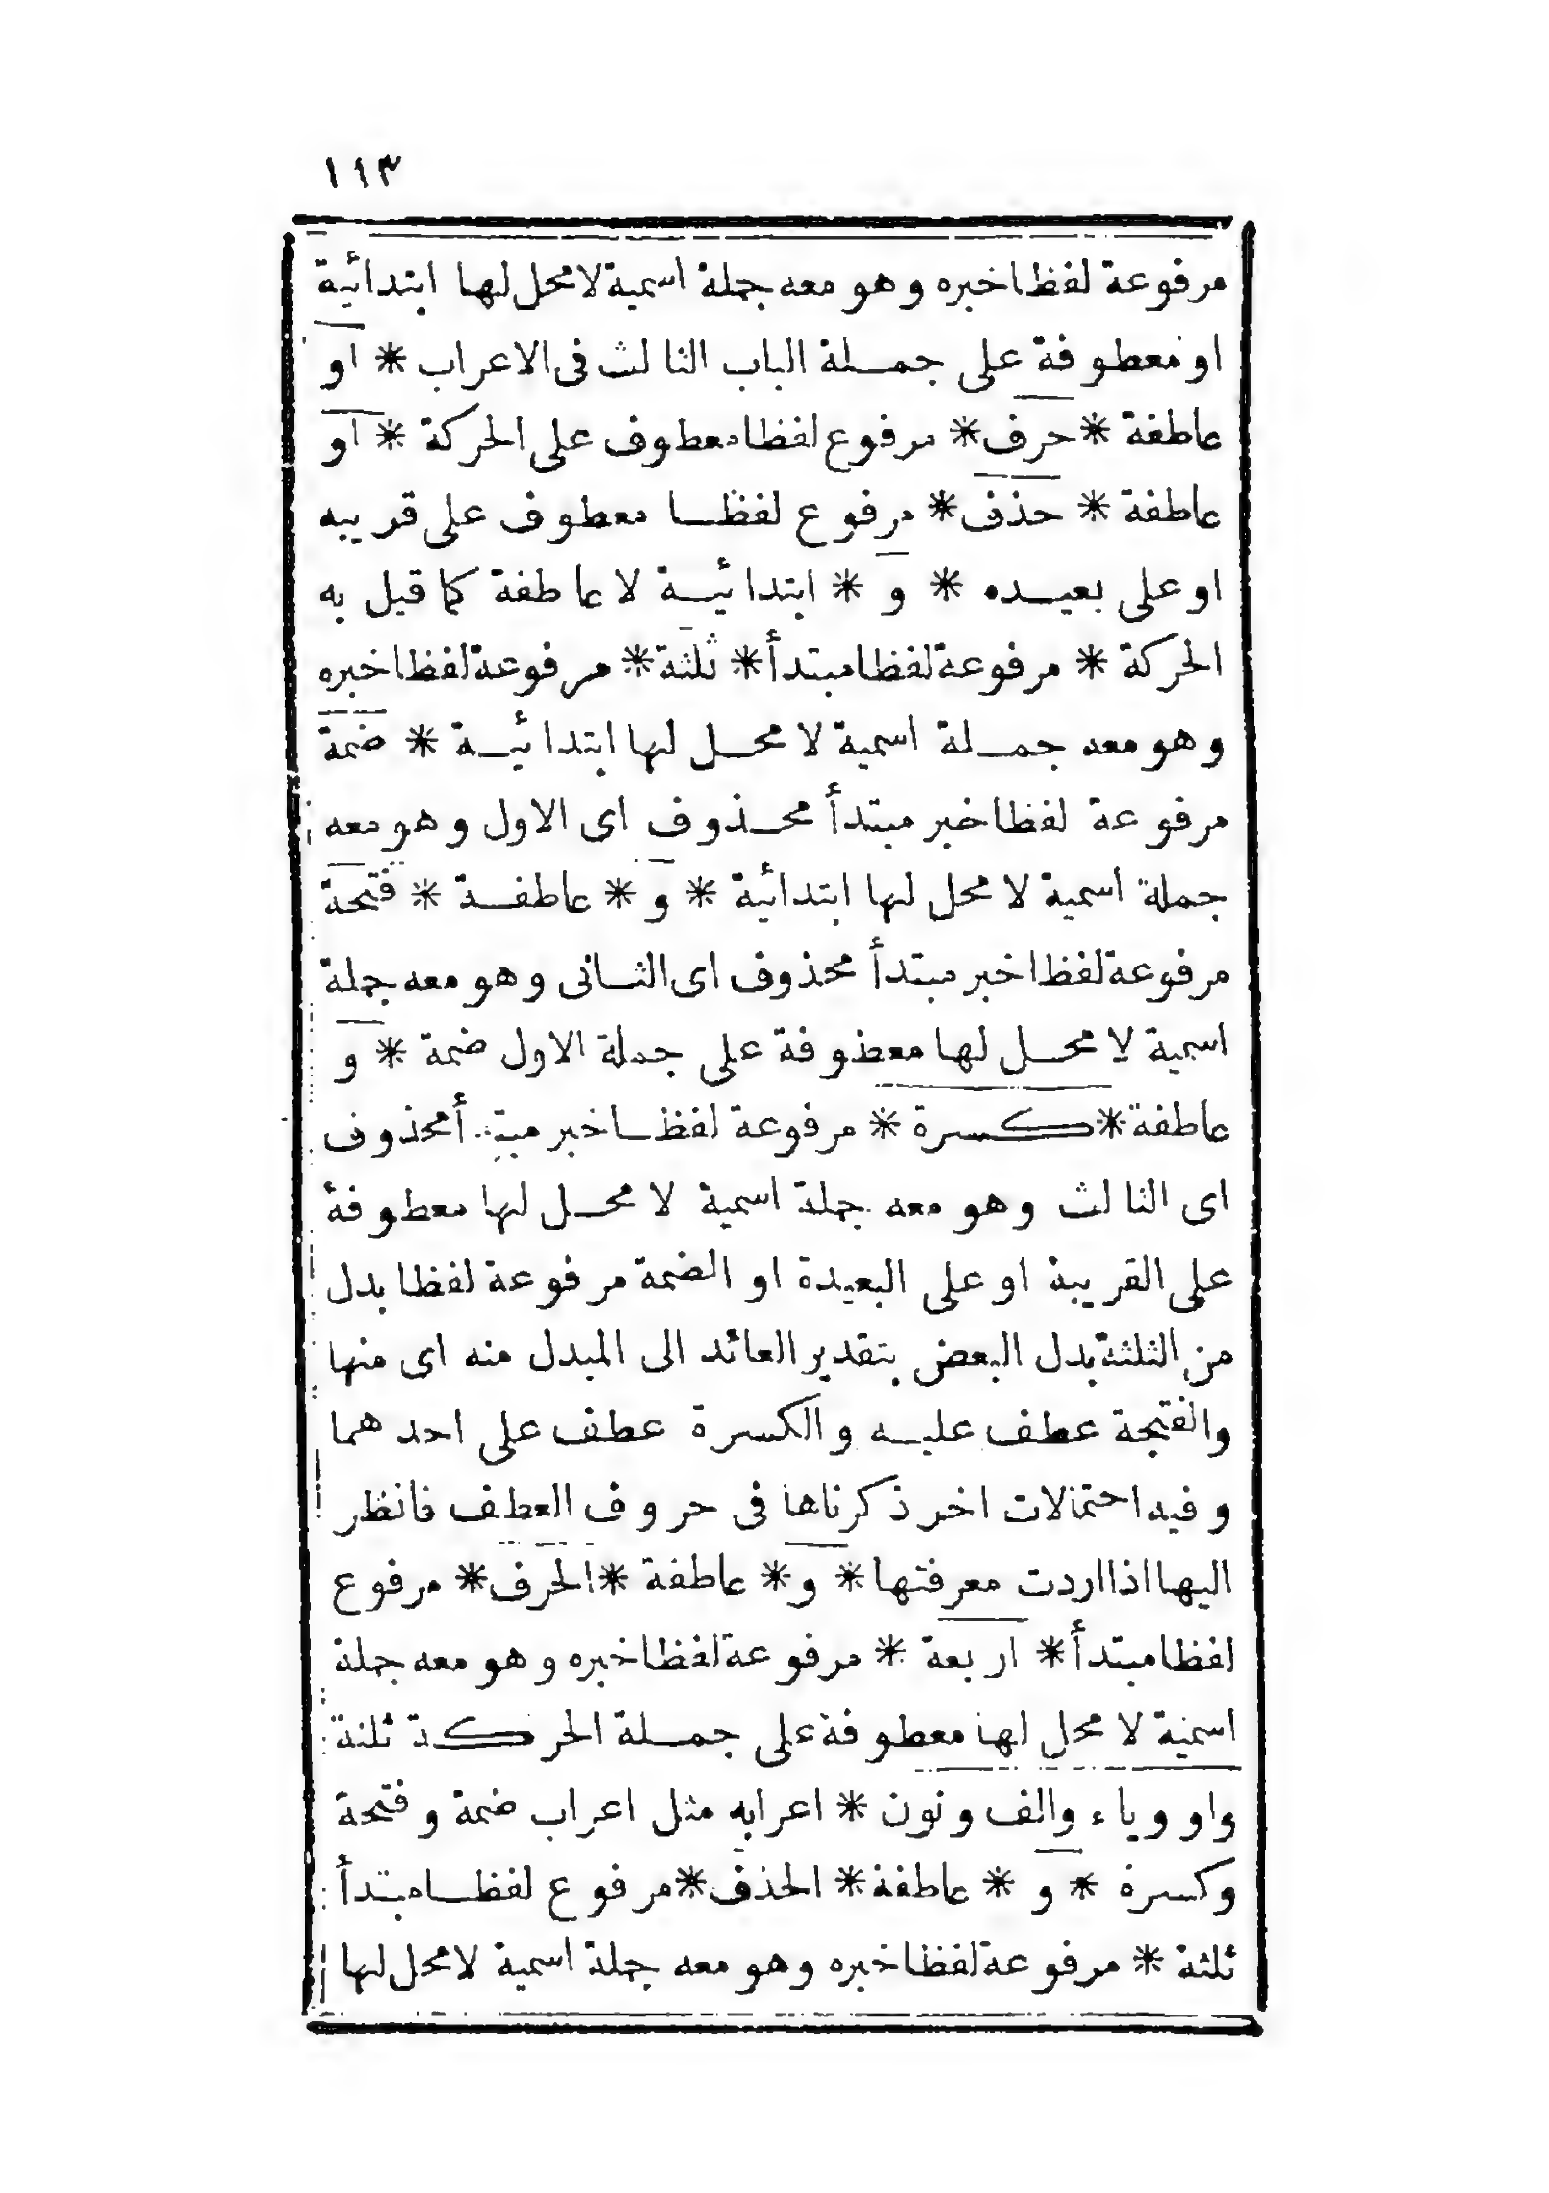 ١١٣
مرفوعة لفظا خبره وهو معه جملة اسمية لا محل لها ابتدائية
او معطوفة على جملة الباب الثالث فى الاعراب * او
عاطفة * حرف * مرفوع لفظا معطوف على الحركة * او
عاطفة * حذف * مرفوع لفظا معطوف على قريبه
او على بعيده * و * ابتدائية لا عاطفة كما قيل به
الحركة * مرفوعة لفظا مبتدأ * ثلثة * مرفوعة لفظا خبره
وهو معه جملة اسمية لا محل لها ابتدائية * ضمة
مرفوعة لفظا خبر مبتدأ محذوف اى الاول وهو معه
جملة اسمية لا محل لها ابتدائية * و * عاطفة * فتحة
مرفوعة لفظا خبر مبتدأ محذوف اى الثانى وهو معه جملة
اسمية لا محل لها معطوفة على جملة الاول ضمة * و
عاطفة * كسرة * مرفوعة لفظا خبر مبتدأ محذوف
اى الثالث وهو معه جملة اسمية لا محل لها معطوفة
على القريبة او على البعيدة او الضمة مرفوعة لفظا بدل
من الثلثة بدل البعض بتقدير العائد الى المبدل منه اى منها
والفتحة عطف عليه والكسرة عطف على احدهما
وفيه احتمالات اخر ذكرناها فى حروف العطف فانظر
اليها اذا اردت معرفتها * و * عاطفة * الحرف * مرفوع
لفظا مبتدأ * اربعة * مرفوعة لفظا خبره وهو معه جملة
اسمية لا محل لها معطوفة على جملة الحركة ثلثة
واو وياء والف ونون * اعرابه مثل اعراب ضمة وفتحة
وكسرة * و * عاطفة * الحذف * مرفوع لفظا مبتدأ
ثلثة * مرفوعة لفظا خبره وهو معه جملة اسمية لا محل لها